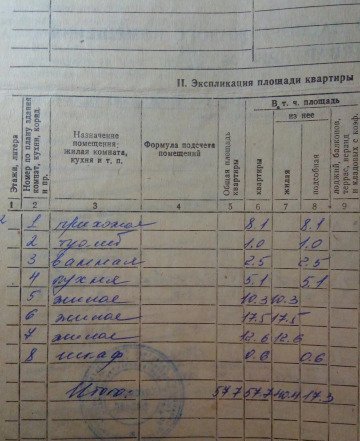 II. Экспликация площади квартиры
Этажи, литера
Номер по плану здания комнат, кухни, корид. и пр.
Назначение помещения: жилая комната, кухня и т. п.
Формула подсчета помещений
Общая площадь квартиры
В т. ч. площадь
из нее
квартиры
жилая
подсобная
лоджий, балконов, террас, веранд и кладовок с коэф.
1 2 3 4 5 6 7 8 9
2 1 прихожая 8.1 8.1
2 туалет 1.0 1.0
3 ванная 2.5 2.5
4 кухня 5.1 5.1
5 жилая 10.3 10.3
6 жилая 17.5 17.5
7 жилая 12.6 12.6
8 шкаф 0.6 0.6
Итого: 57.7 57.7 40.4 17.3